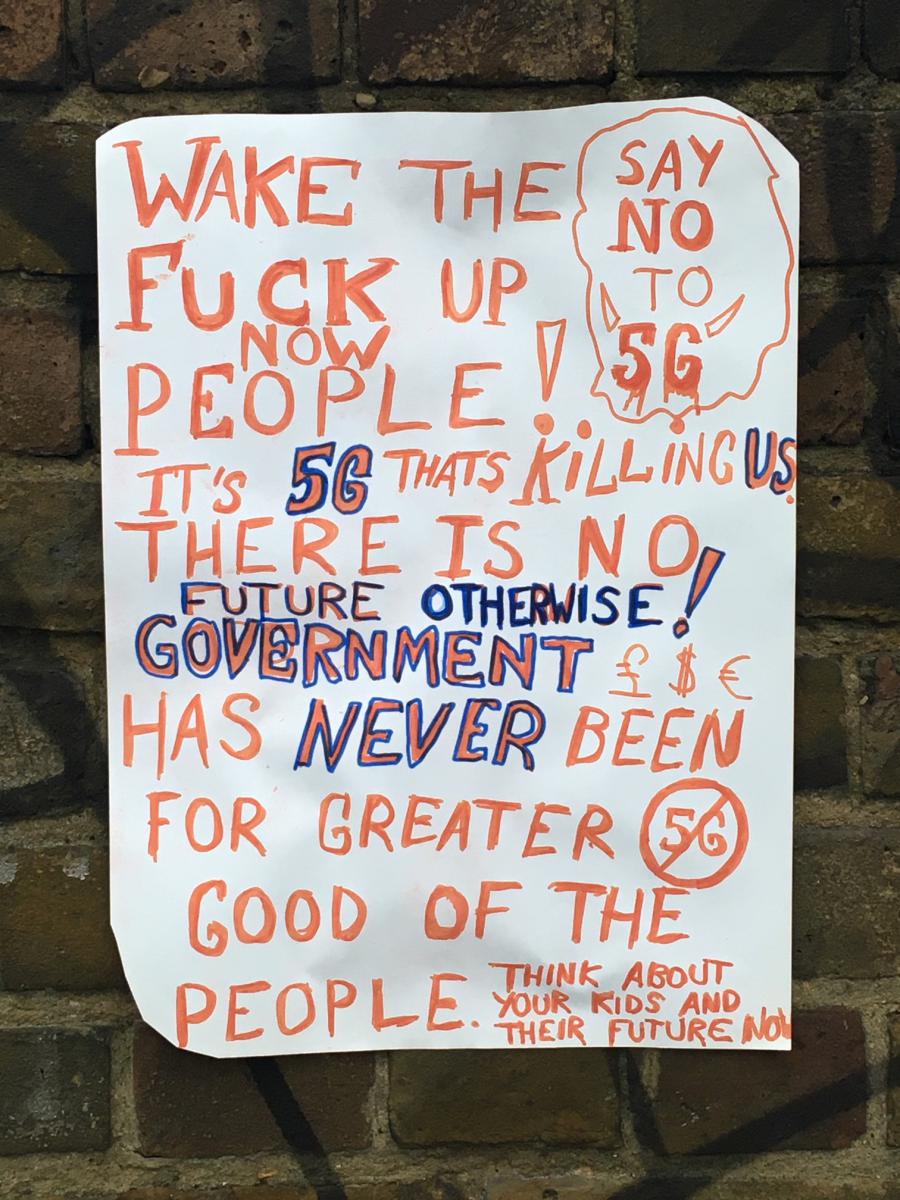 WAKE THE
FUCK UP
NOW
PEOPLE!
SAY
NO
TO
5G
IT'S 5G THATS KiLLiNG US.
THERE IS NO
FUTURE OTHERWISE!
GOVERNMENT £ $ €
HAS NEVER BEEN
FOR GREATER 5G
GOOD OF THE
PEOPLE.
THINK ABOUT
YOUR KIDS AND
THEIR FUTURE NOW